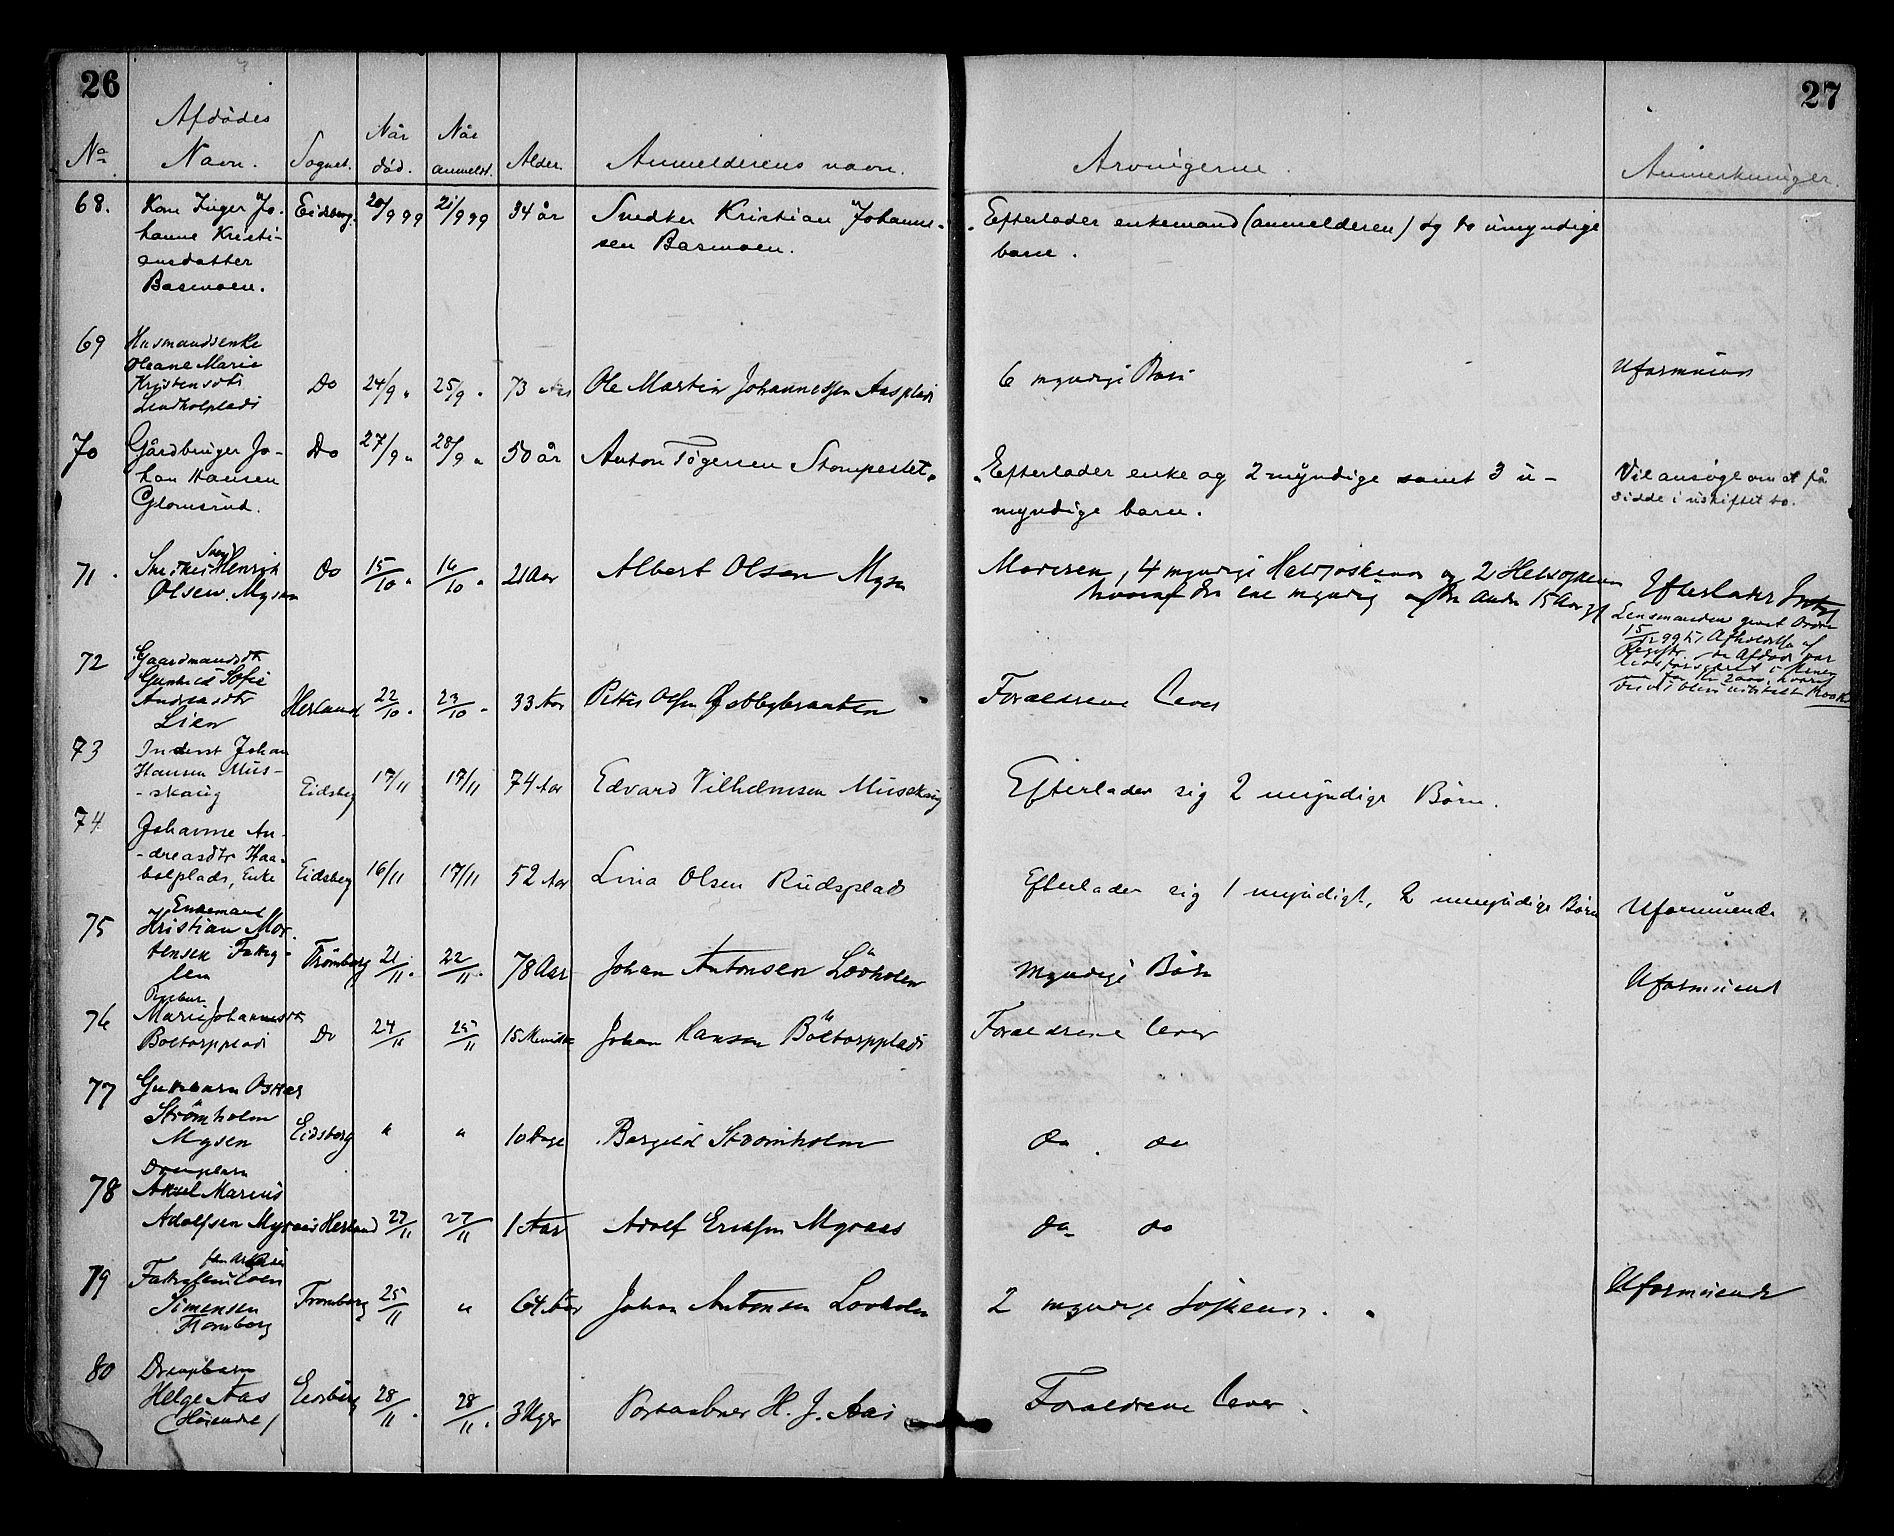 26
27
No. Afdödes Navn. Sognet. Når död. Når anmeldt. Alder. Anmelderens navn. Arvingerne. Anmerkninger.
68. Kone Inger Jo-
hanne Kristi-
ansdatter
Basmoen.
Eidsberg. 20/9 99 21/9 99 34 år Snedker Kristian Johannes-
sen Basmoen.
Efterlader enkemand (anmelderen) og to umyndige
barn.
69 Husmandsenke
Oleane Marie
Kristensdtr
Lindholplads
Do 24/9 " 25/9 " 73 Aar Ole Martin Johannessen Aasplads
6 myndige Börn
Uformuende
70 Gårdbruger Jo-
han Hansen
Glomsrud.
Do 27/9 " 28/9 " 50 år Anton Tögersen Stompestet.
Efterlader enke og 2 myndige samt 3 u-
myndige barn.
Vil ansöge om at få
sidde i uskiftet bo.
71. Svend
Henrik
Olsen Mysen
Do 15/10 " 16/10 " 21 Aar Albert Olsen Mysen
Moderen, 4 myndige Halvsöskende og 2 Helsöskende
hvoraf den ene myndig og den anden 15 Aar gl
Efterlader
Lensmanden givet Ordre
15/12 99 til Afholdelse af
Registr. da Afdöde var
livsforsikret i
for Kr 2000, hvoraf
72 Gaardmandsdtr
Gunhild Sofie
Andreasdtr
Lien
Herland 22/10 " 23/10 " 33 Aar Petter Olsen
Forældrene lever
73 Inderst Johan
Hansen Mus-
-skaug
Eidsberg 17/11 17/11 74 Aar Edvard Vilhelmsen Musskaug
Efterlader sig 2 myndige Börn.
74 Johanne An-
-dreasdtr Haa-
bolplads, Enke
Eidsberg 16/11 17/11 52 Aar Lina Olsen Rudsplads
Efterlader sig 1 myndigt, 2 umyndige Börn
Uformuende
75 Enkemand
Kristian Mor-
tensen Fattig-
lem
Trömborg 21/11 " 22/11 " 78 Aar Johan Antonsen Lövholen
Myndige Börn
Uformuende
76 Pigebarn
Marie Johannesdtr
Boltorpplads
Do 24/11 25/11 15 Johan Hansen Böltorpplads
Forældrene lever
77 Oskar
Strömholm
Mysen
Eidsberg " " 10 Dage Borghild Strömholm
do. do
78 Drengebarn
Aksel Marius
Adolfsen Myraas
Herland 27/11 27/11 1 Aar Adolf Eriksen Myraas
do do
79
Fattiglem
Simensen
Tromborg
Tromborg 25/11 " 64 Aar Johan Antonsen Lovholen
2 myndige Söskende.
Uformuende
80 Drengebarn
Helge Aas
Eidsberg 28/11 " 28/11 " 3 Uger H. J. Aas
Forældrene lever.